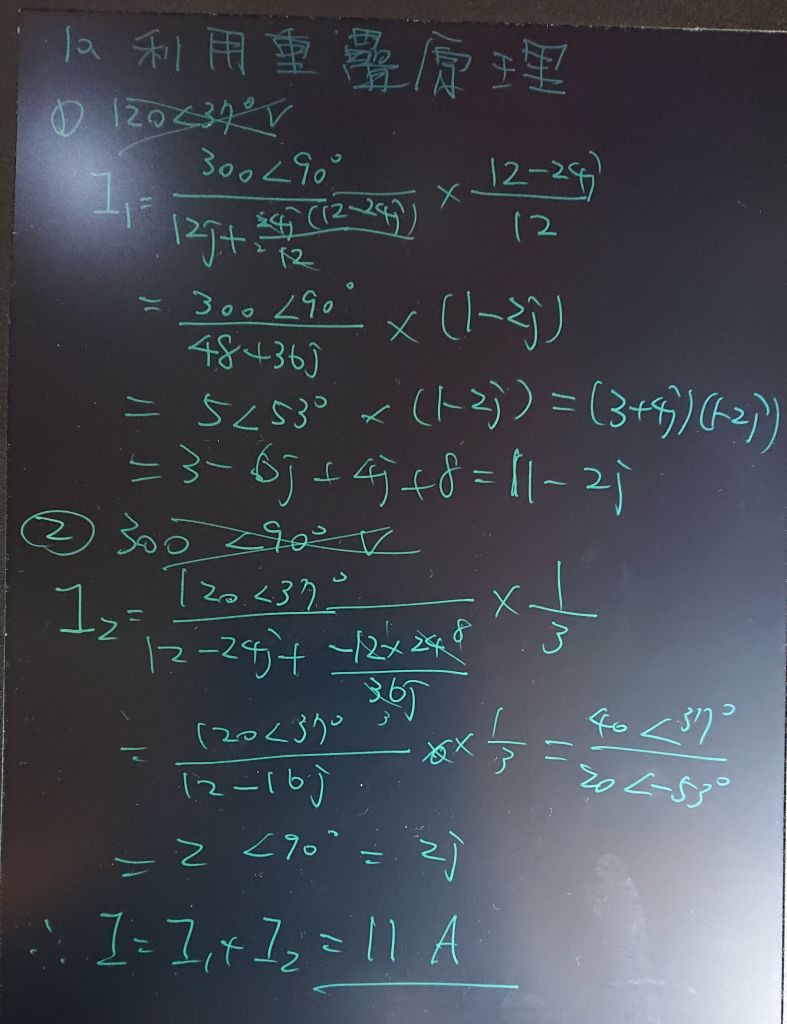 1a 利用重疊原理
① 120∠37° V
I₁= 300∠90° / (12j + 24j(12-24j)/12) × (12-24j)/12
= 300∠90° / (48+36j) × (1-2j)
= 5∠53° × (1-2j) = (3+4j)(1-2j)
= 3-6j+4j+8 = 11-2j
② 300∠90° V
I₂= 120∠37° / (12-24j + (-12×24)/36j) × 1/3
= 120∠37° / (12-16j) × 1/3 = 40∠37° / 20∠-53°
= 2∠90° = 2j
∴ I = I₁+I₂ = 11 A